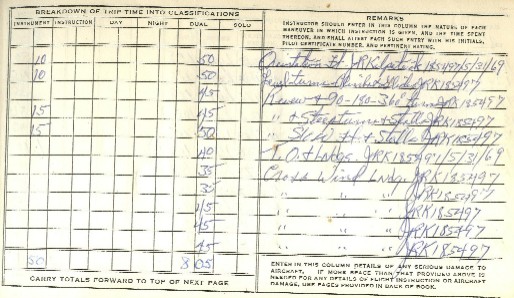 BREAKDOWN OF TRIP TIME INTO CLASSIFICATIONS
INSTRUMENT INSTRUCTION DAY NIGHT DUAL SOLO
REMARKS
INSTRUCTOR SHOULD ENTER IN THIS COLUMN THE NATURE OF EACH
MANEUVER IN WHICH INSTRUCTION IS GIVEN, AND THE TIME SPENT
THEREON, AND SHALL ATTEST EACH SUCH ENTRY WITH HIS INITIALS,
PILOT CERTIFICATE NUMBER, AND PERTINENT RATING.
10 50 Orientation flt JRK 185497 5/31/69
10 50 JRK 185497
45 Review 90-180-360 turns JRK 185497
15 45 " + Steep turns + Stalls JRK 185497
15 50 " Slow flt + Stalls JRK 185497
40 T.O. + Ldgs. JRK 185497 5/31/69
35 Cross Wind Lndg. JRK 185497
30 " " " JRK 185497
45 " " " JRK 185497
45 " " " JRK 185497
45 " " " JRK 185497
50 8 05
CARRY TOTALS FORWARD TO TOP OF NEXT PAGE
ENTER IN THIS COLUMN DETAILS OF ANY SERIOUS DAMAGE TO
AIRCRAFT. IF MORE SPACE THAN THAT PROVIDED ABOVE IS
NEEDED FOR ANY DETAILS OF FLIGHT INSTRUCTION OR AIRCRAFT
DAMAGE, USE PAGES PROVIDED IN BACK OF BOOK.